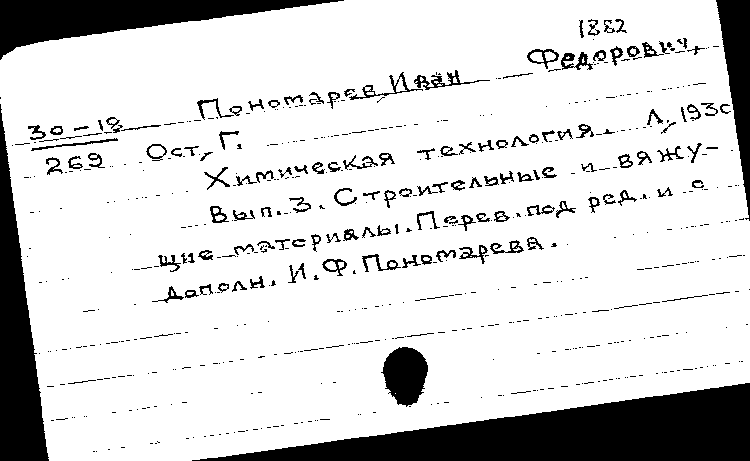 1882
Пономарев, Иван Федорович,
30-18
269
Ост, Г.
Химическая технология. Л., 1930
Вып. 3. Строительные и вяжу-
щие материалы. Перев. под ред. и с
дополн. И. Ф. Пономарева.